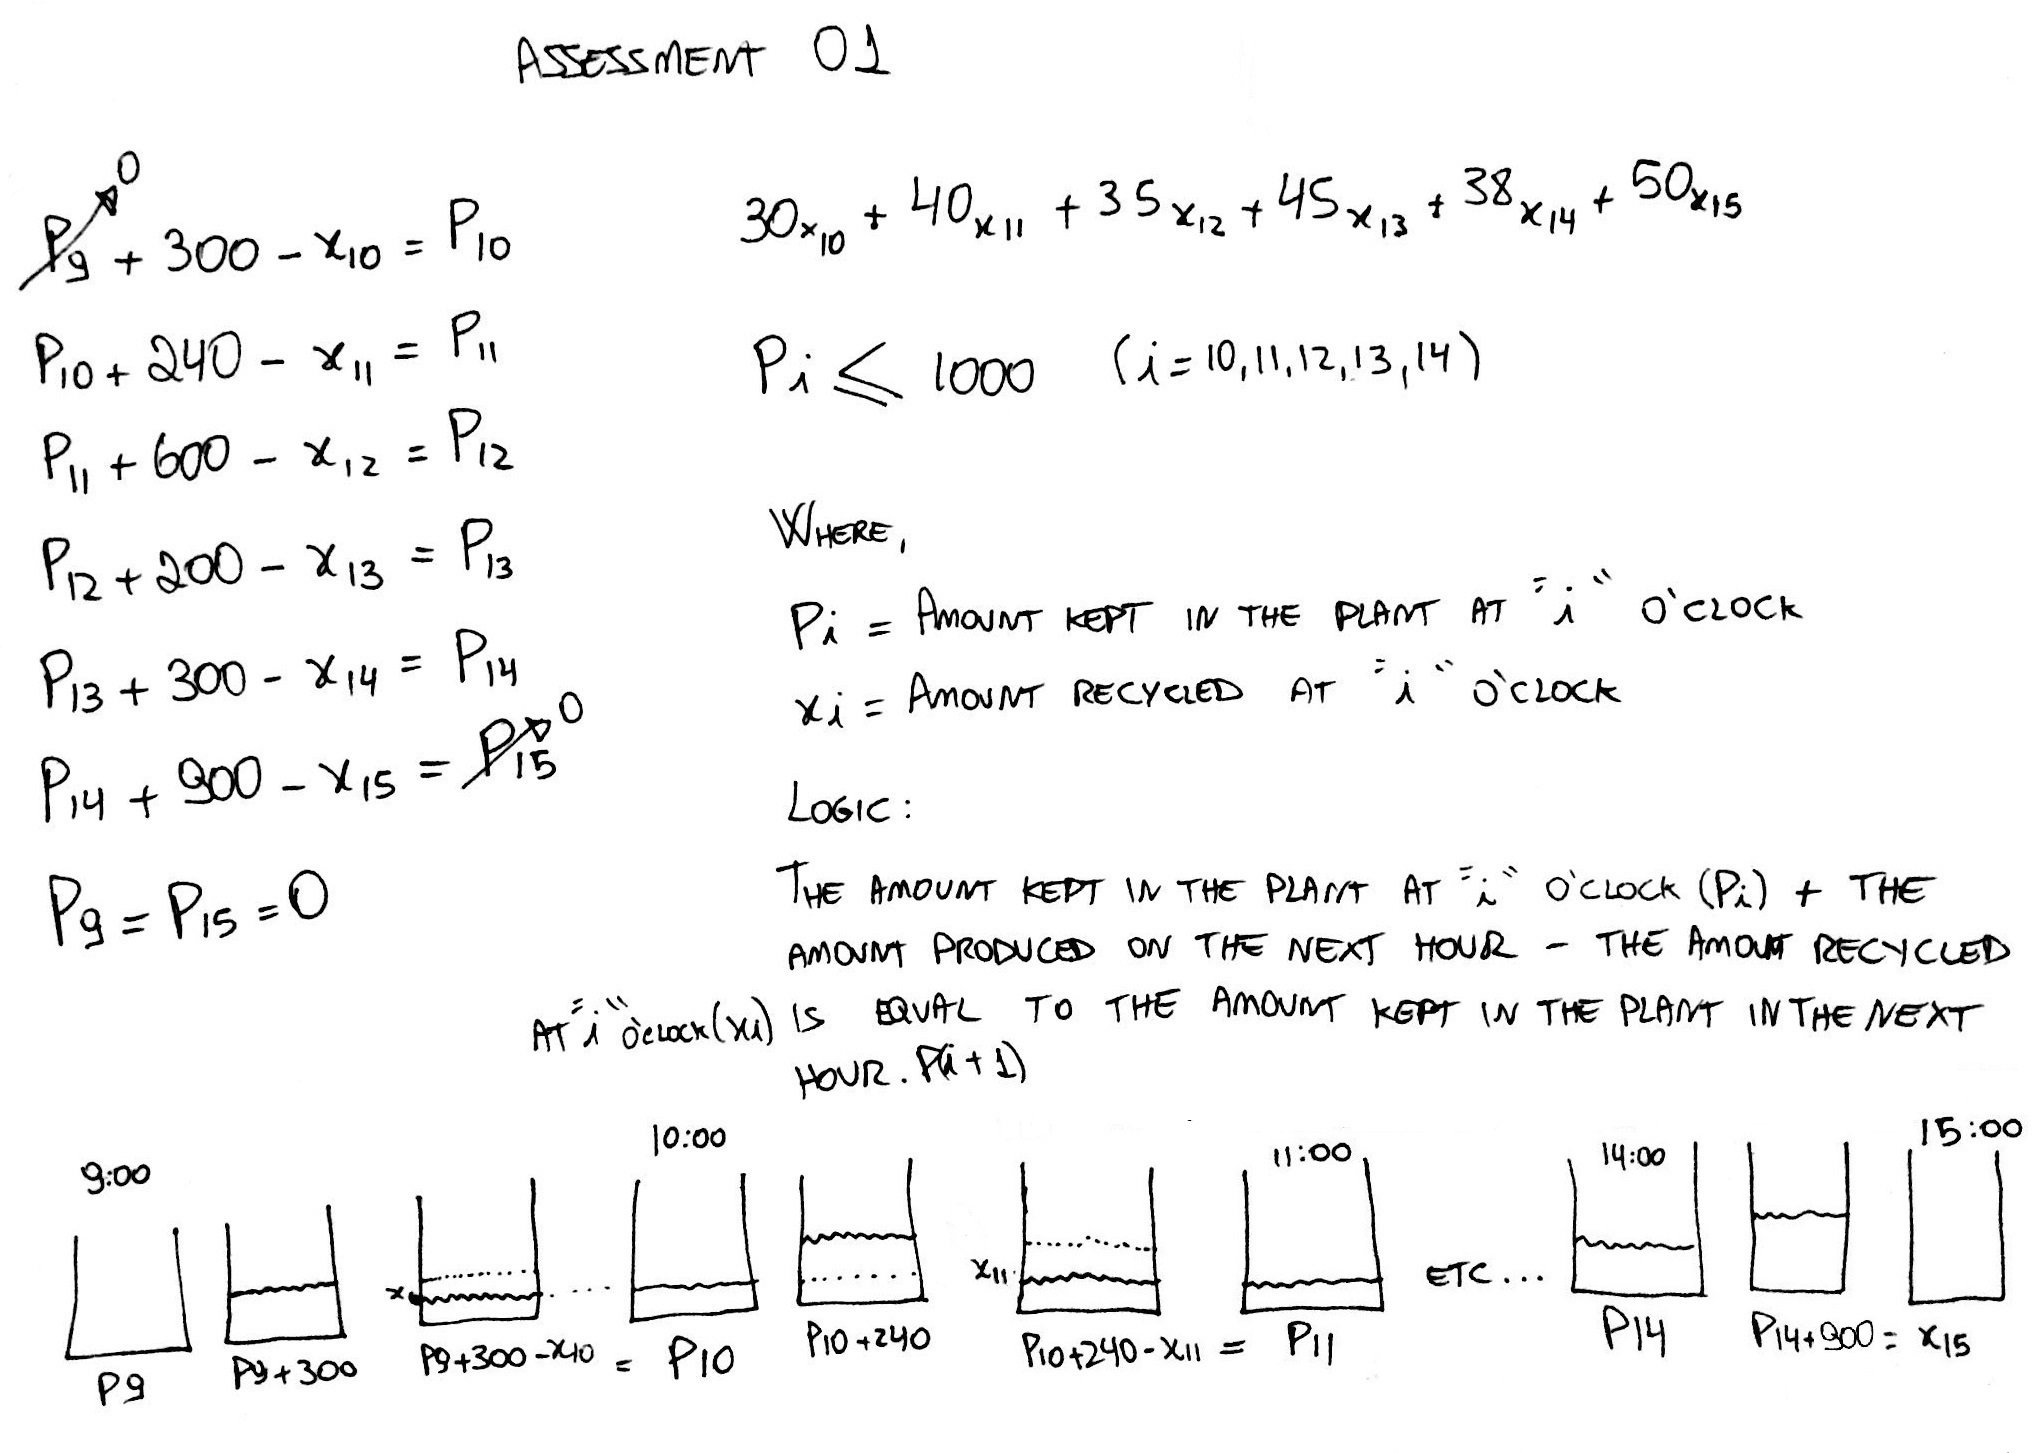 ASSESSMENT 01
P9 0 + 300 - x10 = P10
P10 + 240 - x11 = P11
P11 + 600 - x12 = P12
P12 + 200 - x13 = P13
P13 + 300 - x14 = P14
P14 + 900 - x15 = P15 0
P9 = P15 = 0
30x10 + 40x11 + 35x12 + 45x13 + 38x14 + 50x15
Pi ≤ 1000 (i = 10,11,12,13,14)
WHERE,
Pi = AMOUNT KEPT IN THE PLANT AT "i" O'CLOCK
xi = AMOUNT RECYCLED AT "i" O'CLOCK
LOGIC:
THE AMOUNT KEPT IN THE PLANT AT "i" O'CLOCK (Pi) + THE
AMOUNT PRODUCED ON THE NEXT HOUR - THE AMOUT RECYCLED
AT "i" O'CLOCK (xi) IS EQUAL TO THE AMOUNT KEPT IN THE PLANT IN THE NEXT
HOUR. P(i+1)
9:00 10:00 11:00 14:00 15:00
x x11 ETC...
P9 P9+300 P9+300-x10 = P10 P10+240 P10+240-x11 = P11 P14 P14+900 = x15